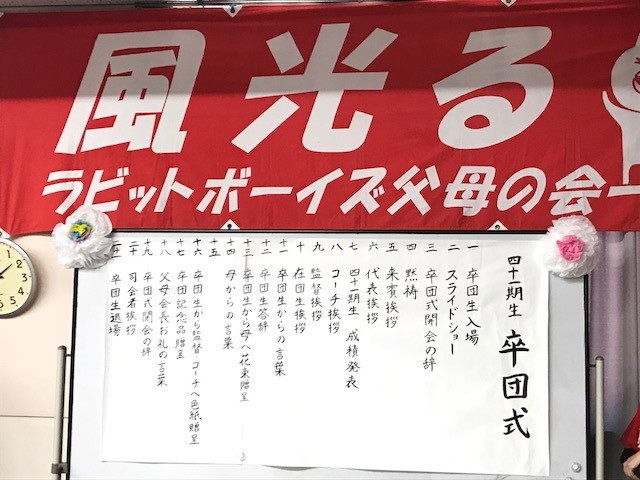 風光る
ラビットボーイズ父母の会一
四十一期生 卒団式
一 卒団生入場
二 スライドショー
三 卒団式開会の辞
四 黙祷
五 来賓挨拶
六 代表挨拶
七 四十一期生 成績発表
八 コーチ挨拶
九 監督挨拶
十 在団生挨拶
十一 卒団生からの言葉
十二 卒団生答辞
十三 卒団生から母へ花束贈呈
十四 母からの言葉
十五
十六 卒団生から監督・コーチへ色紙贈呈
十七 卒団記念品贈呈
十八 父母会長お礼の言葉
十九 卒団式閉会の辞
二十 司会者挨拶
二一 卒団生退場